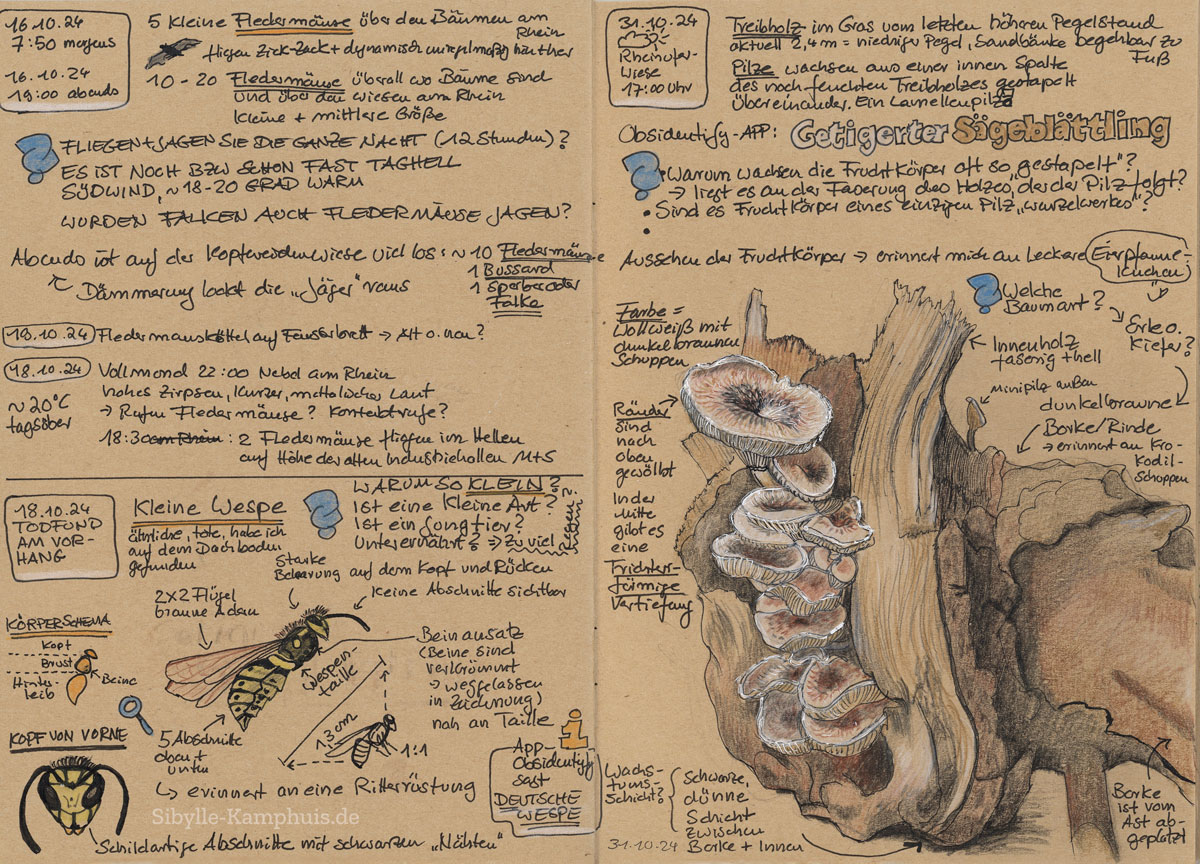 16.10.24
7:50 morgens
16.10.24
19:00 abends
5 kleine Fledermäuse über den Bäumen am
Rhein
fliegen Zick-Zack + dynamisch unregelmäßig hin + her
10 - 20 Fledermäuse überall wo Bäume sind
und über den Wiesen am Rhein
kleine + mittlere Größe
? FLIEGEN + JAGEN SIE DIE GANZE NACHT (12 Stunden)?
ES IST NOCH BZW SCHON FAST TAGHELL
SÜDWIND, ~ 18-20 GRAD WARM
WÜRDEN FALKEN AUCH FLEDERMÄUSE JAGEN?
Abends ist auf der Kopfweidenwiese viel los: ~ 10 Fledermäuse
1 Bussard
1 Sperber oder
Falke
Dämmerung lockt die „Jäger" raus
18.10.24 Fledermausköttel auf Fensterbrett → Alt o. neu?
18.10.24 Vollmond 22:00 Nebel am Rhein
~ 20°C
tagsüber
hohes Zirpsen, kurzer, metallischer Laut
→ Rufen Fledermäuse? Kontaktrufe?
18:30 am Rhein: 2 Fledermäuse fliegen im Hellen
auf Höhe der alten Industriehallen M+S
18.10.24
TODFUND
AM VOR-
HANG
Kleine Wespe
ähnliche, tote, habe ich
auf dem Dachboden
gefunden
? WARUM SO KLEIN?
Ist eine kleine Art?
Ist ein Jungtier?
Unterernährt? ⇒ Zu viel
Regen?
Starke
Behaarung auf dem Kopf und Rücken
keine Abschnitte sichtbar
2x2 Flügel
braune Adern
KÖRPERSCHEMA
Kopf
Brust
Hinter-
leib
Beine
Wespen-
taille
Beinansatz
(Beine sind
verkrümmt
→ weggelassen
in Zeichnung)
nah an Taille
1,3cm
1:1
KOPF VON VORNE
5 Abschnitte
oben +
unten
↳ erinnert an eine Ritterrüstung
App-
Obsidentify
sagt
DEUTSCHE
WESPE
Sibylle-Kamphuis.de
Schildartige Abschnitte mit schwarzen „Nähten"
31.10.24
Rheinufer-
wiese
17:00 Uhr
Treibholz im Gras vom letzten höheren Pegelstand
aktuell 2,4 m = niedriger Pegel, Sandbänke begehbar zu
Fuß
Pilze wachsen aus einer innen Spalte
des noch feuchten Treibholzes gestapelt
übereinander. Ein Lamellenpilz
Obsidentify-APP: Getigerter Sägeblättling
? • Warum wachsen die Fruchtkörper oft so „gestapelt"?
→ liegt es an der Faserung des Holzes, der der Pilz folgt?
• Sind es Fruchtkörper eines einzigen Pilz „wurzelwerkes"?
Aussehen der Fruchtkörper → erinnert mich an leckere Eierpfanne-
kuchen
Farbe =
Wollweiß mit
dunkelbraunen
Schuppen
? Welche
Baumart?
Erle o.
Kiefer?
Innenholz
faserig + hell
Minipilz außen
dunkelbraune
Borke/Rinde
→ erinnert an Kro-
kodil-
schuppen
Ränder
sind
nach
oben
gewölbt
In der
Mitte
gibt es
eine
Trichter-
förmige
Vertiefung
Wachs-
tums-
Schicht?
Schwarze,
dünne
Schicht
zwischen
Borke + Innen
31.10.24
Borke
ist vom
Ast ab-
geplatzt